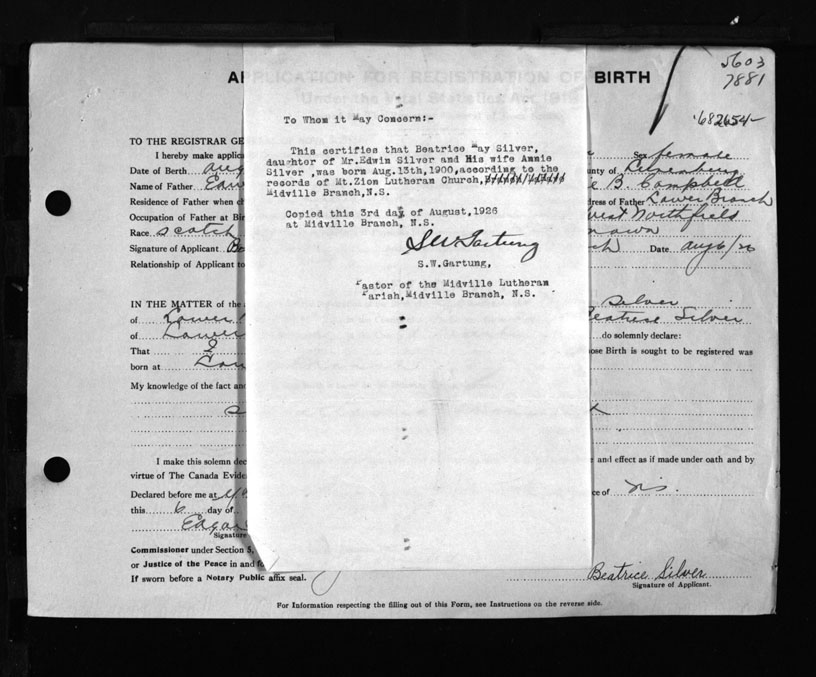 5603
7881
'682654-
APPLICATION FOR REGISTRATION OF BIRTH
Under the Vital Statistics Act 1919
To Whom it May Concern:-
This certifies that Beatrice May Silver,
daughter of Mr.Edwin Silver and His wife Annie
Silver ,was born Aug.13th,1900,according to the
records of Mt.Zion Lutheran Church,
Midville Branch,N.S.
Copied this 3rd day of August,1926
at Midville Branch, N.S.
S.W. Gartung
S.W.Gartung,
Pastor of the Midville Lutheran
Parish,Midville Branch, N.S.
TO THE REGISTRAR GE
I hereby make applic
Sex female
Date of Birth Aug
unty of Lunenburg
Name of Father Edw
e B. Campbell
Residence of Father when ch
dress of Father Lower Branch
Occupation of Father at Bir
West Northfield
Race Scotch
Signature of Applicant Be
ch Date Aug 6/26
Relationship of Applicant to
IN THE MATTER of the
Silver
of Lower
Beatrice Silver
of Lower
do solemnly declare:
That I
ose Birth is sought to be registered was
born at Low
My knowledge of the fact and
I make this solemn dec
e and effect as if made under oath and by
virtue of The Canada Evide
Declared before me at
ce of N.S.
this 6 day of
Edgar
Signature
Commissioner under Section 5,
or Justice of the Peace in and fo
If sworn before a Notary Public affix seal.
Beatrice Silver
Signature of Applicant.
For Information respecting the filling out of this Form, see Instructions on the reverse side.